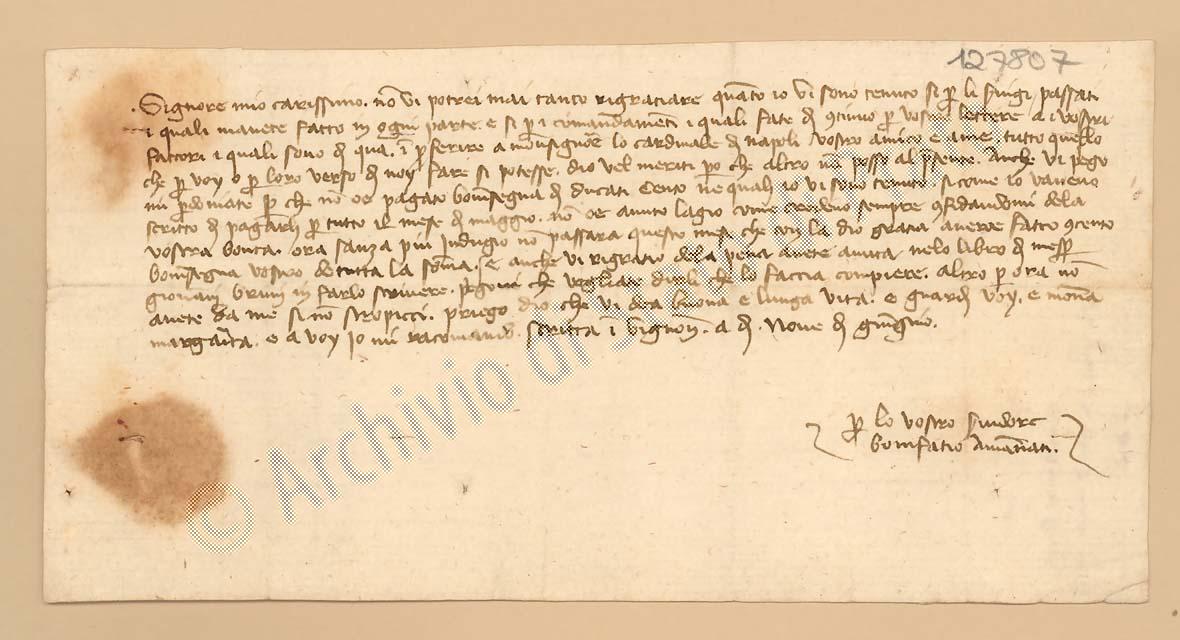 127807
. Signore mio carissimo. nō vi potrei mai tanto rigratiare quāto io vi sono tenuto si p̄ li passati
i quali mavete fatto in ogni parte. e si p̄ i comandamēti i quali fate p̄ vostre lettere a i vostri
fattori i quali sono di qua. a monsignōre lo cardinale di napoli vostro amico e tutto quello
che p̄ voy o p̄ loro verso di noy fare si potesse. dio vel meriti po che altro nō posso al p̄sente. Anche vi pego
mi p̄doniate p̄ che nō oe pagato bonīsegna di ducati Cento ne quali io vi sono tenuto. si come io vaveno
scritto di pagarli p̄ tutto il mese di maggio. nō oe avuto lagio come credevo sempre dela
vostra bonta. ora sanza piu indugio nō passara questo mese che la dio gratia averve fatto
bonīsegna vostro de tutta la sōma. E anche vi rigratio dela pena avete avuta nelo libro di mess̄
giovani bruni in farlo scrivere. p̄govi che vogliate dirli che lo faccia compiere. Altro p̄ ora nō
avete da me si nō stropicci. priego dio che vi dia buona e lunga vita. e guardi voy. e mōna
margārita. e a voy Io mi racomando. scritta ī Vignoñ. a di. Nove di giugno.
p̄ lo vostro
bonifatio amānati.
© Archivio di Stato